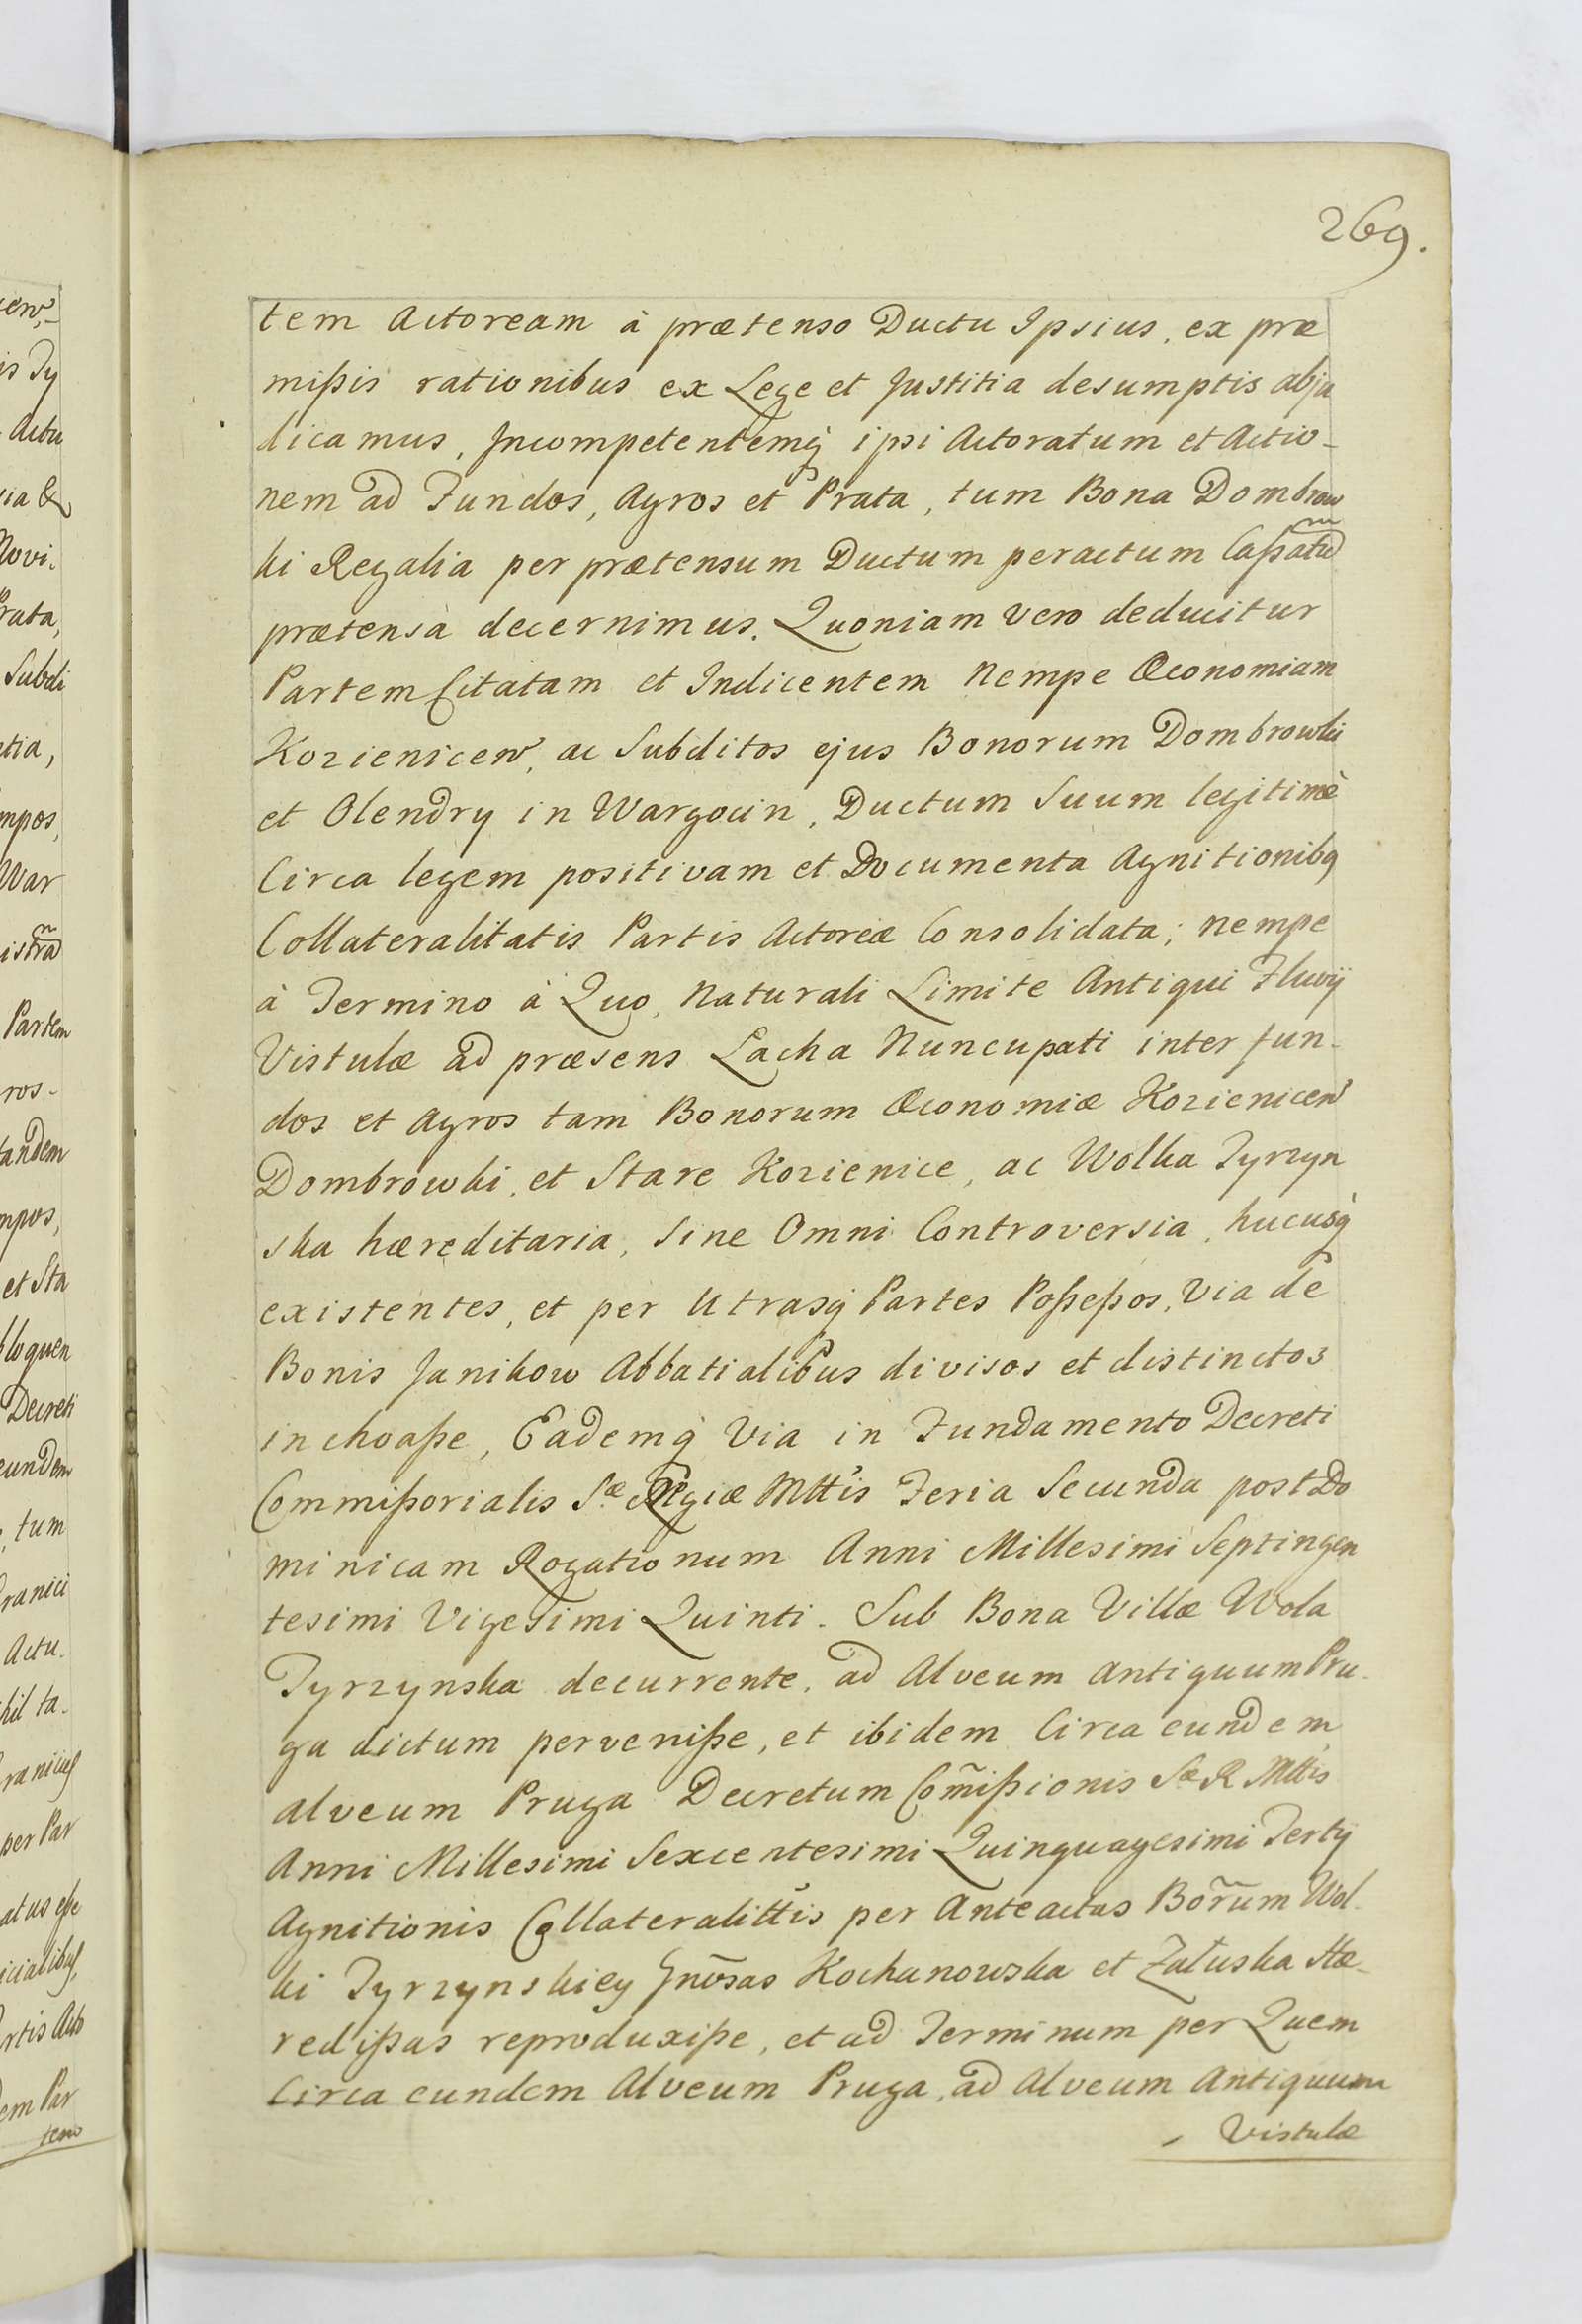 269.
tem Actoream à prætenso Ductu Ipsius, ex præ
mißis rationibus ex Lege et Justitia desumptis abju
dicamus, Incompetentemq̀ ipsi Actoratum et Actio-
nem ad Fundos, Agros et Prata, tum Bona Dombrow
ki Regalia per prætensum Ductum peractum Caßatũ
prætensa decernimus. Quoniam vero deducitur
Partem Citatam et Indicentem Nempe Œconomiam
Kozienicen, ac Subditos ejus Bonorum Dombrowki
et Olendry in Wargocin, Ductum Suum legitimè
Circa legem positivam et Documenta Agnitionibq
Collateralitatis Partis Actoreæ Consolidata; nempe
à Termino à Quo, Naturali Limite Antiqui Fluvij
Vistulæ ad præsens Lacha Nuncupati inter fun-
dos et Agros tam Bonorum Œconomiæ Kozienicen
Dombrowki, et Stare Kozienice, ac Wolka Tyrzyn
ska hæreditaria, Sine Omni Controversia, hucusq̀
existentes, et per Utrasq̀ Partes Poßeßos, Via de
Bonis Janikow Abbatialibus divisos et distinctos
inchoaße, Eademq̀ Via in Fundamento Decreti
Commißorialis Sæ Regiæ Mttis Feria Secunda post Do
minicam Rogationum Anni Millesimi Septingen
tesimi Vigesimi Quinti. Sub Bona Villæ Wola
Tyrzynska decurrente, ad Alveum antiquum Pru-
ga dictum perveniße, et ibidem Circa eundem
alveum Pruga Decretum Com̃ißionis SæR Mttis
Anni Millesimi Sexcentesimi Quinquagesimi Tertij
Agnitionis Collateralittis per Anteactas Bor̃um Wol-
ki Tyrzynskiey Gnõsas Kochanowska et Załuska Hæ-
redißas reproduxiße, et ad Terminum per Quem
Circa eundem Alveum Pruga, ad Alveum Antiquum
Vistulæ